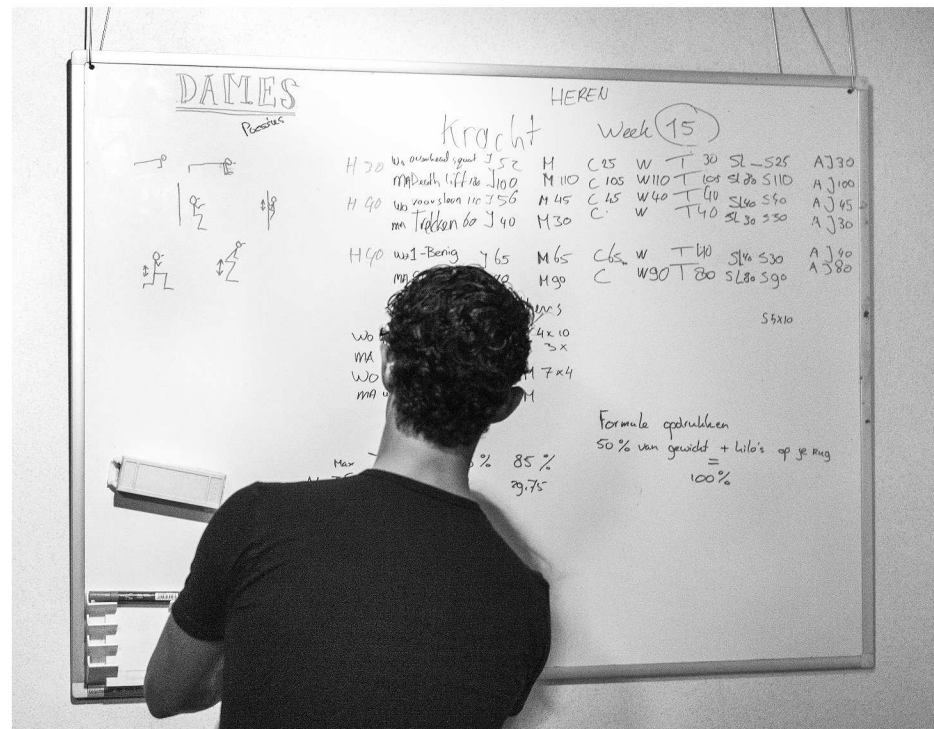 DAMES
HEREN
Kracht Week 15
H 30 Wo overhead squat J 52 M C 25 W T 30 SL - S25 AJ30
MA J100 M 110 C 105 W110 T 105 SL80 S110 AJ100
H 40 wo J 56 M 45 C 45 W40 T 40 SL40 S40 AJ45
mA Trekken 60 J 40 M30 C W T40 SL30 S30 AJ30
H40 wo 1-Benig J 65 M65 C65 W T 40 SL40 S30 AJ40
MA M90 C W90 T 80 SL80 S90 AJ80
S 5x10
Wo 4x10
MA 3x
WO M 7x4
MA M
Formule opdrukken
50% van gewicht + kilo's op je rug
=
100%
Max % 85%
29.75